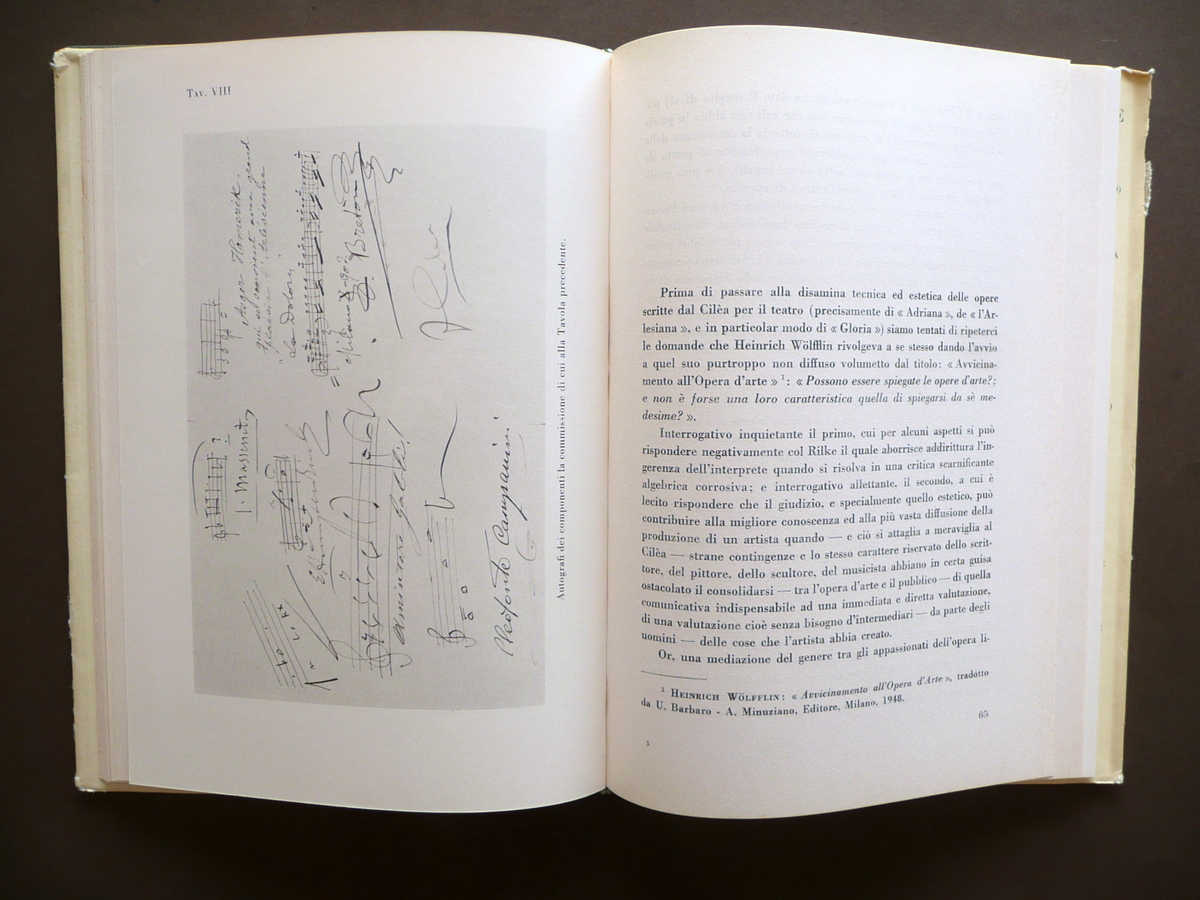 Tav. VIII
Asger Hamerik.
J. Massenet
La Dolores
Milano 8-902
T. Bretón
Amintore Galli
Cleofonte Campanini
Autografi dei componenti la commissione di cui alla Tavola precedente.
Prima di passare alla disamina tecnica ed estetica delle opere
scritte dal Cilèa per il teatro (precisamente di « Adriana », de « l'Ar-
lesiana », e in particolar modo di « Gloria ») siamo tentati di ripeterci
le domande che Heinrich Wölfflin rivolgeva a se stesso dando l'avvio
a quel suo purtroppo non diffuso volumetto dal titolo: « Avvicina-
mento all'Opera d'arte » ¹: « Possono essere spiegate le opere d'arte?;
e non è forse una loro caratteristica quella di spiegarsi da sè me-
desime? ».
Interrogativo inquietante il primo, cui per alcuni aspetti si può
rispondere negativamente col Rilke il quale aborrisce addirittura l'in-
gerenza dell'interprete quando si risolva in una critica scarnificante
algebrica corrosiva; e interrogativo allettante, il secondo, a cui è
lecito rispondere che il giudizio, e specialmente quello estetico, può
contribuire alla migliore conoscenza ed alla più vasta diffusione della
produzione di un artista quando — e ciò si attaglia a meraviglia al
Cilèa — strane contingenze e lo stesso carattere riservato dello scrit-
tore, del pittore, dello scultore, del musicista abbiano in certa guisa
ostacolato il consolidarsi — tra l'opera d'arte e il pubblico — di quella
comunicativa indispensabile ad una immediata e diretta valutazione,
di una valutazione cioè senza bisogno d'intermediari — da parte degli
uomini — delle cose che l'artista abbia creato.
Or, una mediazione del genere tra gli appassionati dell'opera li-
¹ Heinrich Wölfflin: « Avvicinamento all'Opera d'Arte », tradotto
da U. Barbaro - A. Minuziano, Editore, Milano, 1948.
65
5